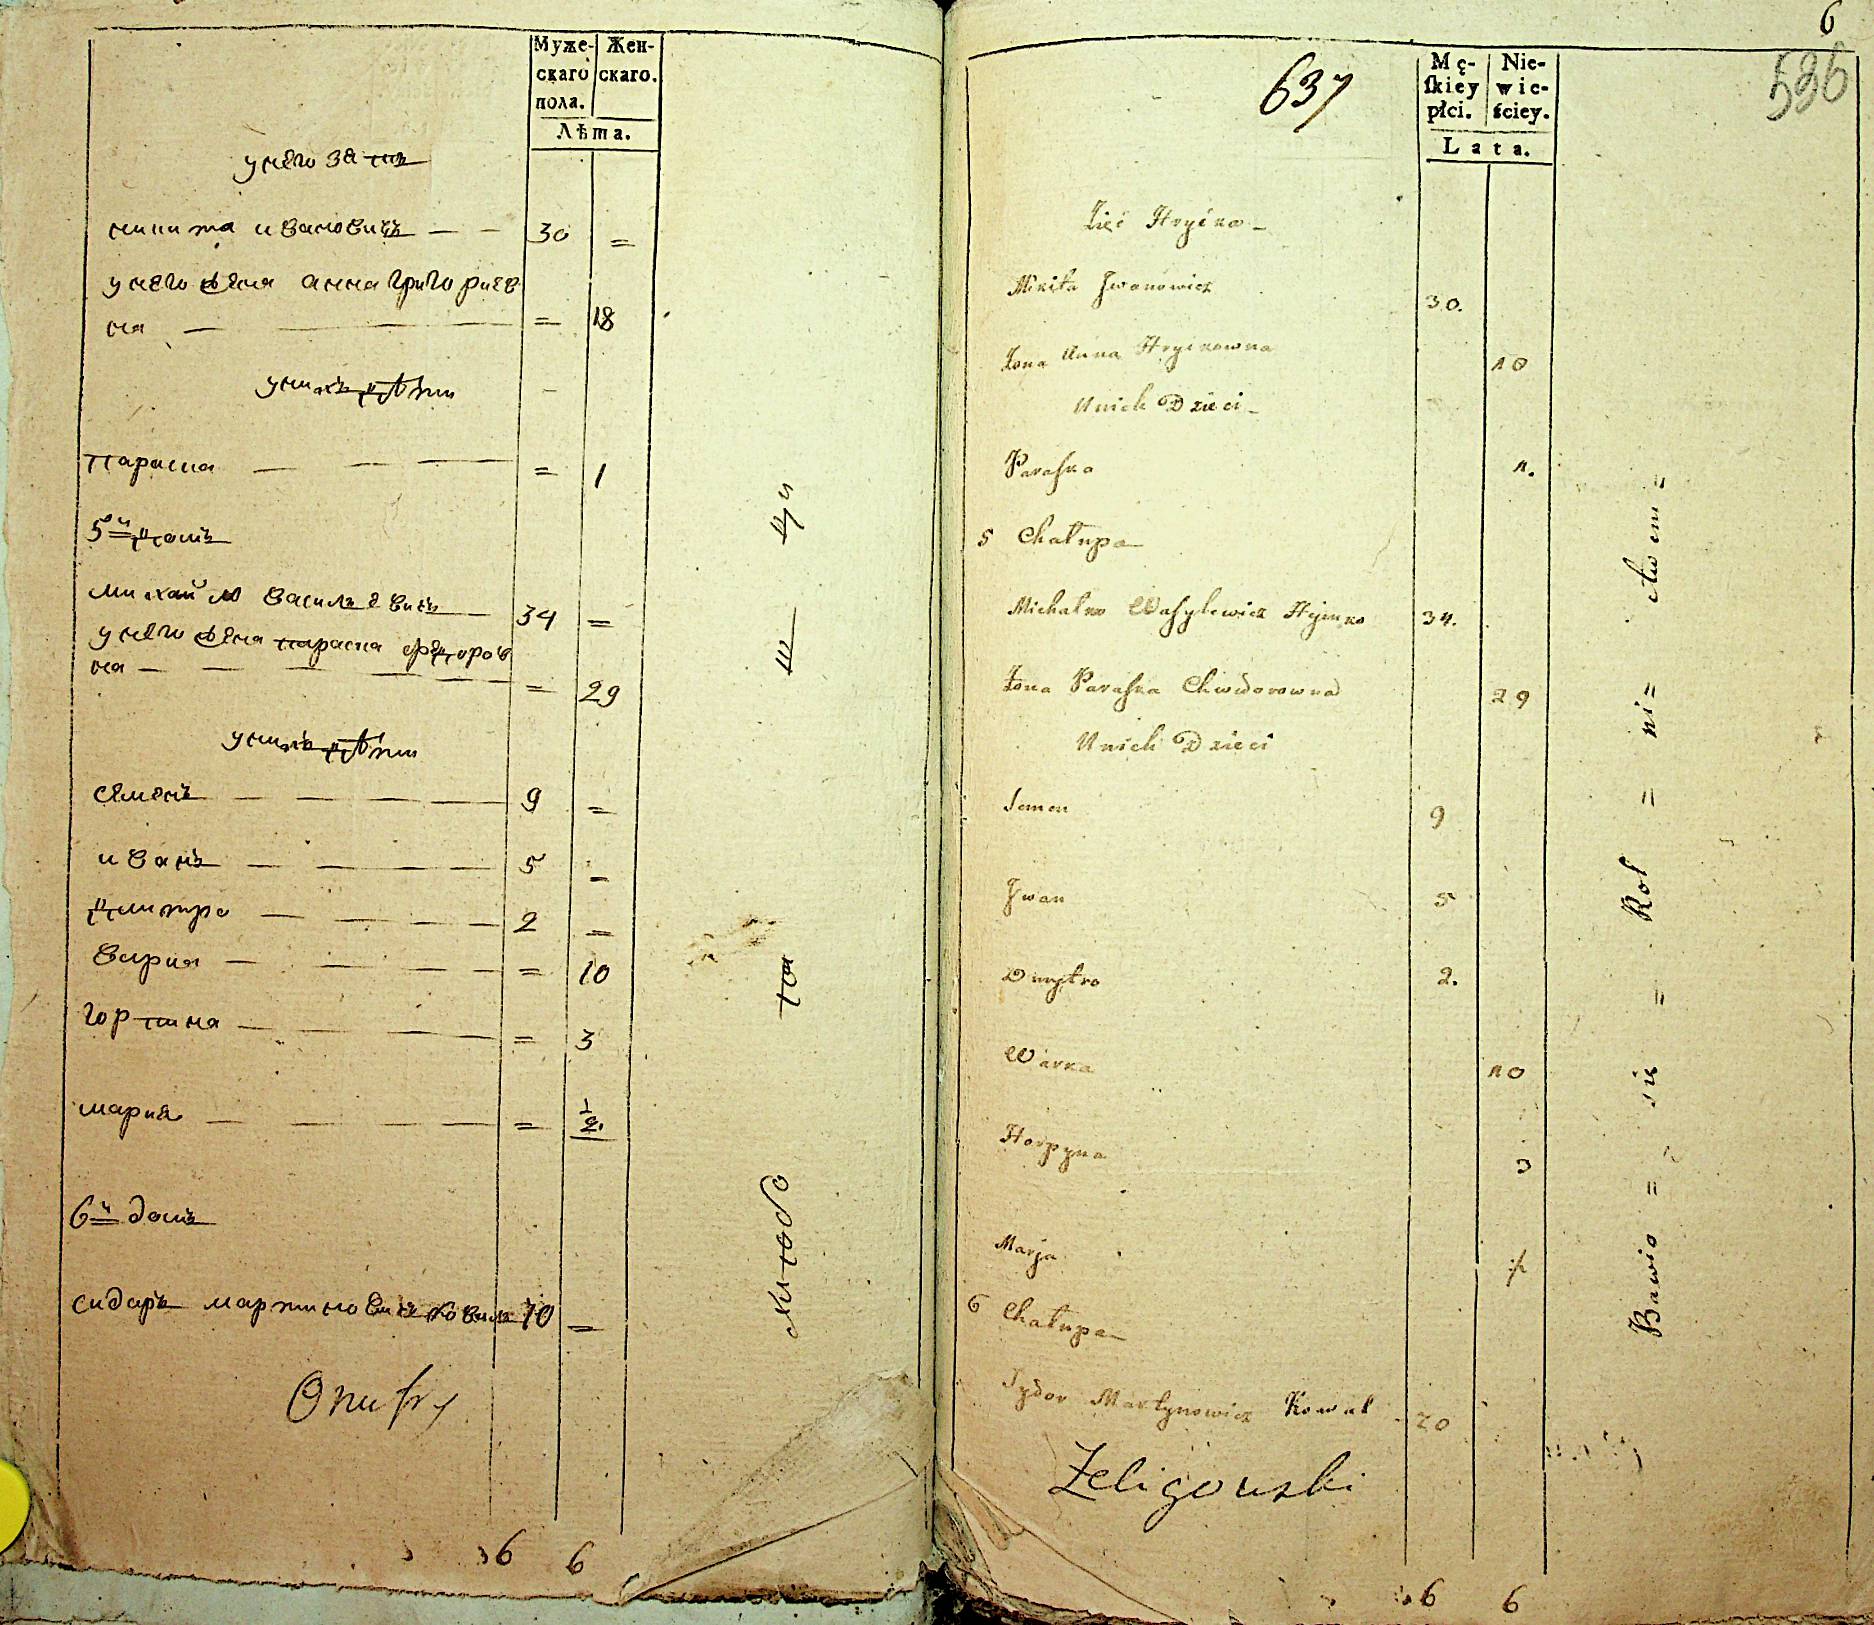 Муже- Жен-
скаго скаго.
пола.
Лѣта.
у него зять
никита ивановичъ 30 =
у него жена анна григориев
на = 18
у нихъ дѣти
параска = 1
5й домъ
михайло васильевичъ 34 =
у него жена параска федоров
на = 29
у нихъ дѣти
семенъ 9 =
иванъ 5 =
дмитро 2 =
варка = 10
горпина = 3
мария = 1/2
6й домъ
сидоръ мартиновичъ коваль 70 =
Onufry
36 6
6
536
637
Mę- Nie-
ſkiey wie-
płci. ściey.
Lata.
Zięć Hryćka
Mikita Jwanowicz 30.
Żona Anna Hryćkowna 18
U nich Dzieci
Paraſka 1.
5 Chałupa
Michałko Waſylewicz 34.
Żona Paraſka Chwedorowna 29
U nich Dzieci
Semen 9
Jwan 5
Dmytro 2.
Warka 10
Horpyna 3
Marja 1/2
6 Chałupa
Sydor Martynowicz Kowal 70
Żeligowski
6 6